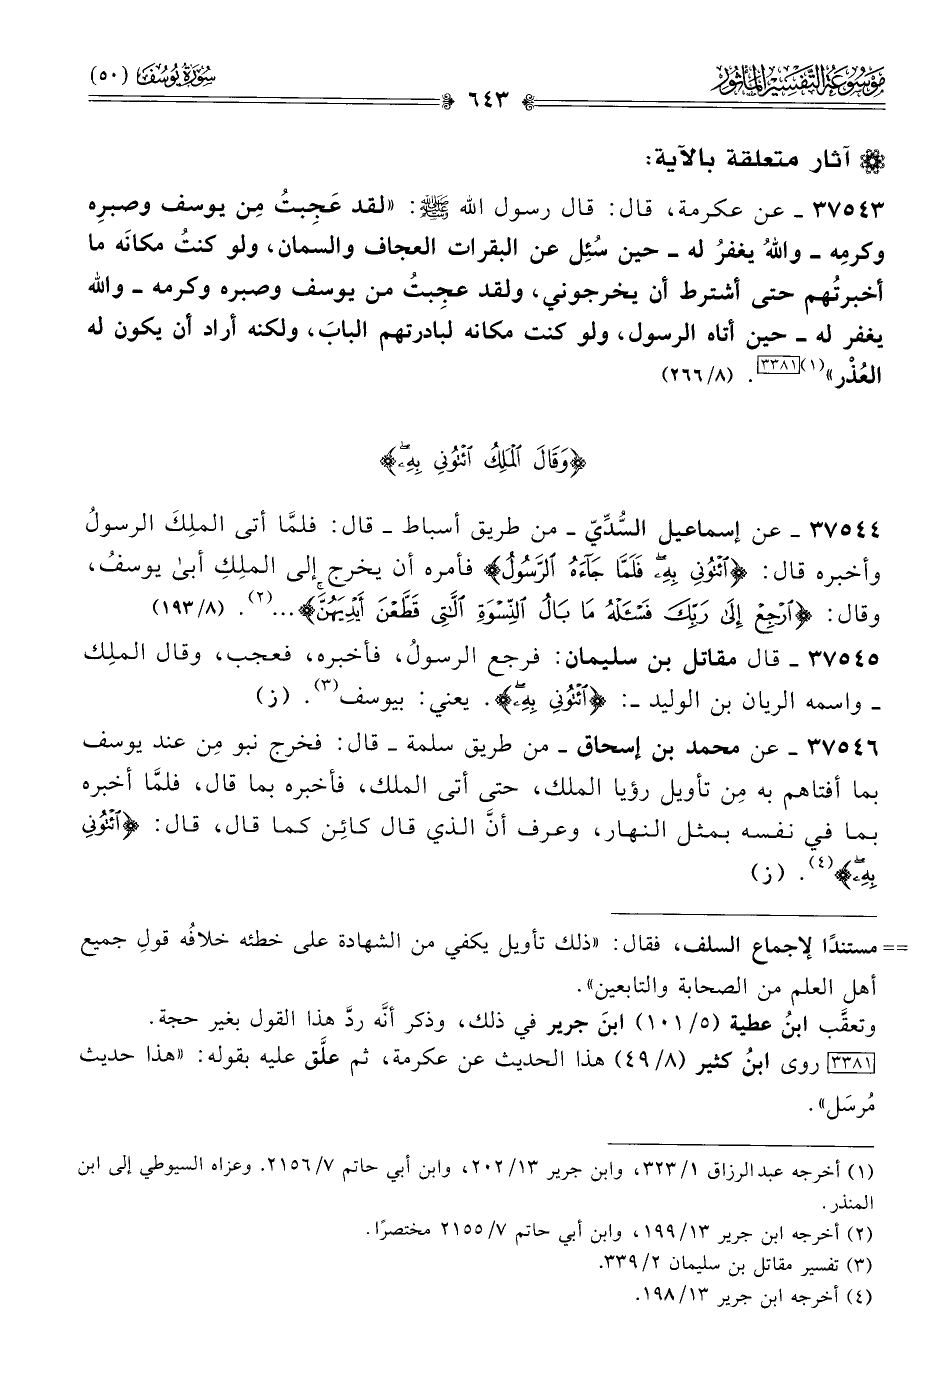 مَوْسُوعَةُ التَّفْسِيرِ المَأْثُورِ
سُورَةُ يُوسُفَ (٥٠)
٦٤٣
آثار متعلقة بالآية:
٣٧٥٤٣ ـ عن عكرمة، قال: قال رسول الله ﷺ: «لقد عَجِبتُ مِن يوسف وصبرِه
وكرمِه ـ واللهُ يغفرُ له ـ حين سُئِل عن البقرات العجاف والسمان، ولو كنتُ مكانَه ما
أخبرتُهم حتى أشترط أن يخرجوني، ولقد عجبتُ من يوسف وصبره وكرمه ـ والله
يغفر له ـ حين أتاه الرسول، ولو كنت مكانه لبادرتهم البابَ، ولكنه أراد أن يكون له
العُذْر»(١)[٣٣٨١]. (٢٦٦/٨)
﴿وَقَالَ ٱلْمَلِكُ ٱئْتُونِي بِهِۦۖ﴾
٣٧٥٤٤ ـ عن إسماعيل السُّدِّيّ ـ من طريق أسباط ـ قال: فلمَّا أتى الملِكَ الرسولُ
وأخبره قال: ﴿ٱئْتُونِي بِهِۦۖ فَلَمَّا جَآءَهُ ٱلرَّسُولُ﴾ فأمره أن يخرج إلى الملِكِ أبىٰ يوسفُ،
وقال: ﴿ٱرْجِعْ إِلَىٰ رَبِّكَ فَسْـَٔلْهُ مَا بَالُ ٱلنِّسْوَةِ ٱلَّٰتِي قَطَّعْنَ أَيْدِيَهُنَّۚ﴾...(٢). (١٩٣/٨)
٣٧٥٤٥ ـ قال مقاتل بن سليمان: فرجع الرسولُ، فأخبره، فعجب، وقال الملِك
ـ واسمه الريان بن الوليد ـ: ﴿ٱئْتُونِي بِهِۦۖ﴾. يعني: بيوسف(٣). (ز)
٣٧٥٤٦ ـ عن محمد بن إسحاق ـ من طريق سلمة ـ قال: فخرج نبو مِن عند يوسف
بما أفتاهم به مِن تأويل رؤيا الملك، حتى أتى الملك، فأخبره بما قال، فلمَّا أخبره
بما في نفسه بمثل النهار، وعرف أنَّ الذي قال كائِن كما قال، قال: ﴿ٱئْتُونِي
بِهِۦۖ﴾(٤). (ز)
== مستندًا لإجماع السلف، فقال: «ذلك تأويل يكفي من الشهادة على خطئه خلافُه قولِ جميع
أهل العلم من الصحابة والتابعين».
وتعقَّب ابنُ عطية (١٠١/٥) ابنَ جرير في ذلك، وذكر أنَّه ردَّ هذا القول بغير حجة.
[٣٣٨١] روى ابنُ كثير (٤٩/٨) هذا الحديث عن عكرمة، ثم علَّق عليه بقوله: «هذا حديث
مُرسَل».
(١) أخرجه عبدالرزاق ٣٢٣/١، وابن جرير ٢٠٢/١٣، وابن أبي حاتم ٢١٥٦/٧. وعزاه السيوطي إلى ابن
المنذر.
(٢) أخرجه ابن جرير ١٩٩/١٣، وابن أبي حاتم ٢١٥٥/٧ مختصرًا.
(٣) تفسير مقاتل بن سليمان ٣٣٩/٢.
(٤) أخرجه ابن جرير ١٩٨/١٣.